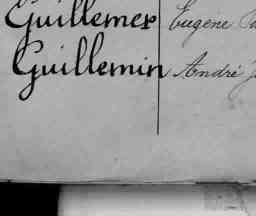 Guillemer Eugène
Guillemin André